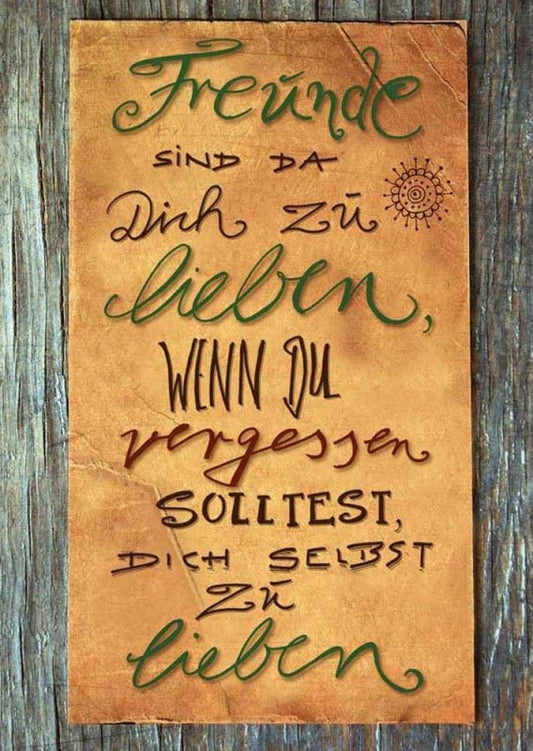 Freunde
SIND DA
Dich zu
lieben,
WENN DU
vergessen
SOLLTEST,
DICH SELBST
zu
lieben